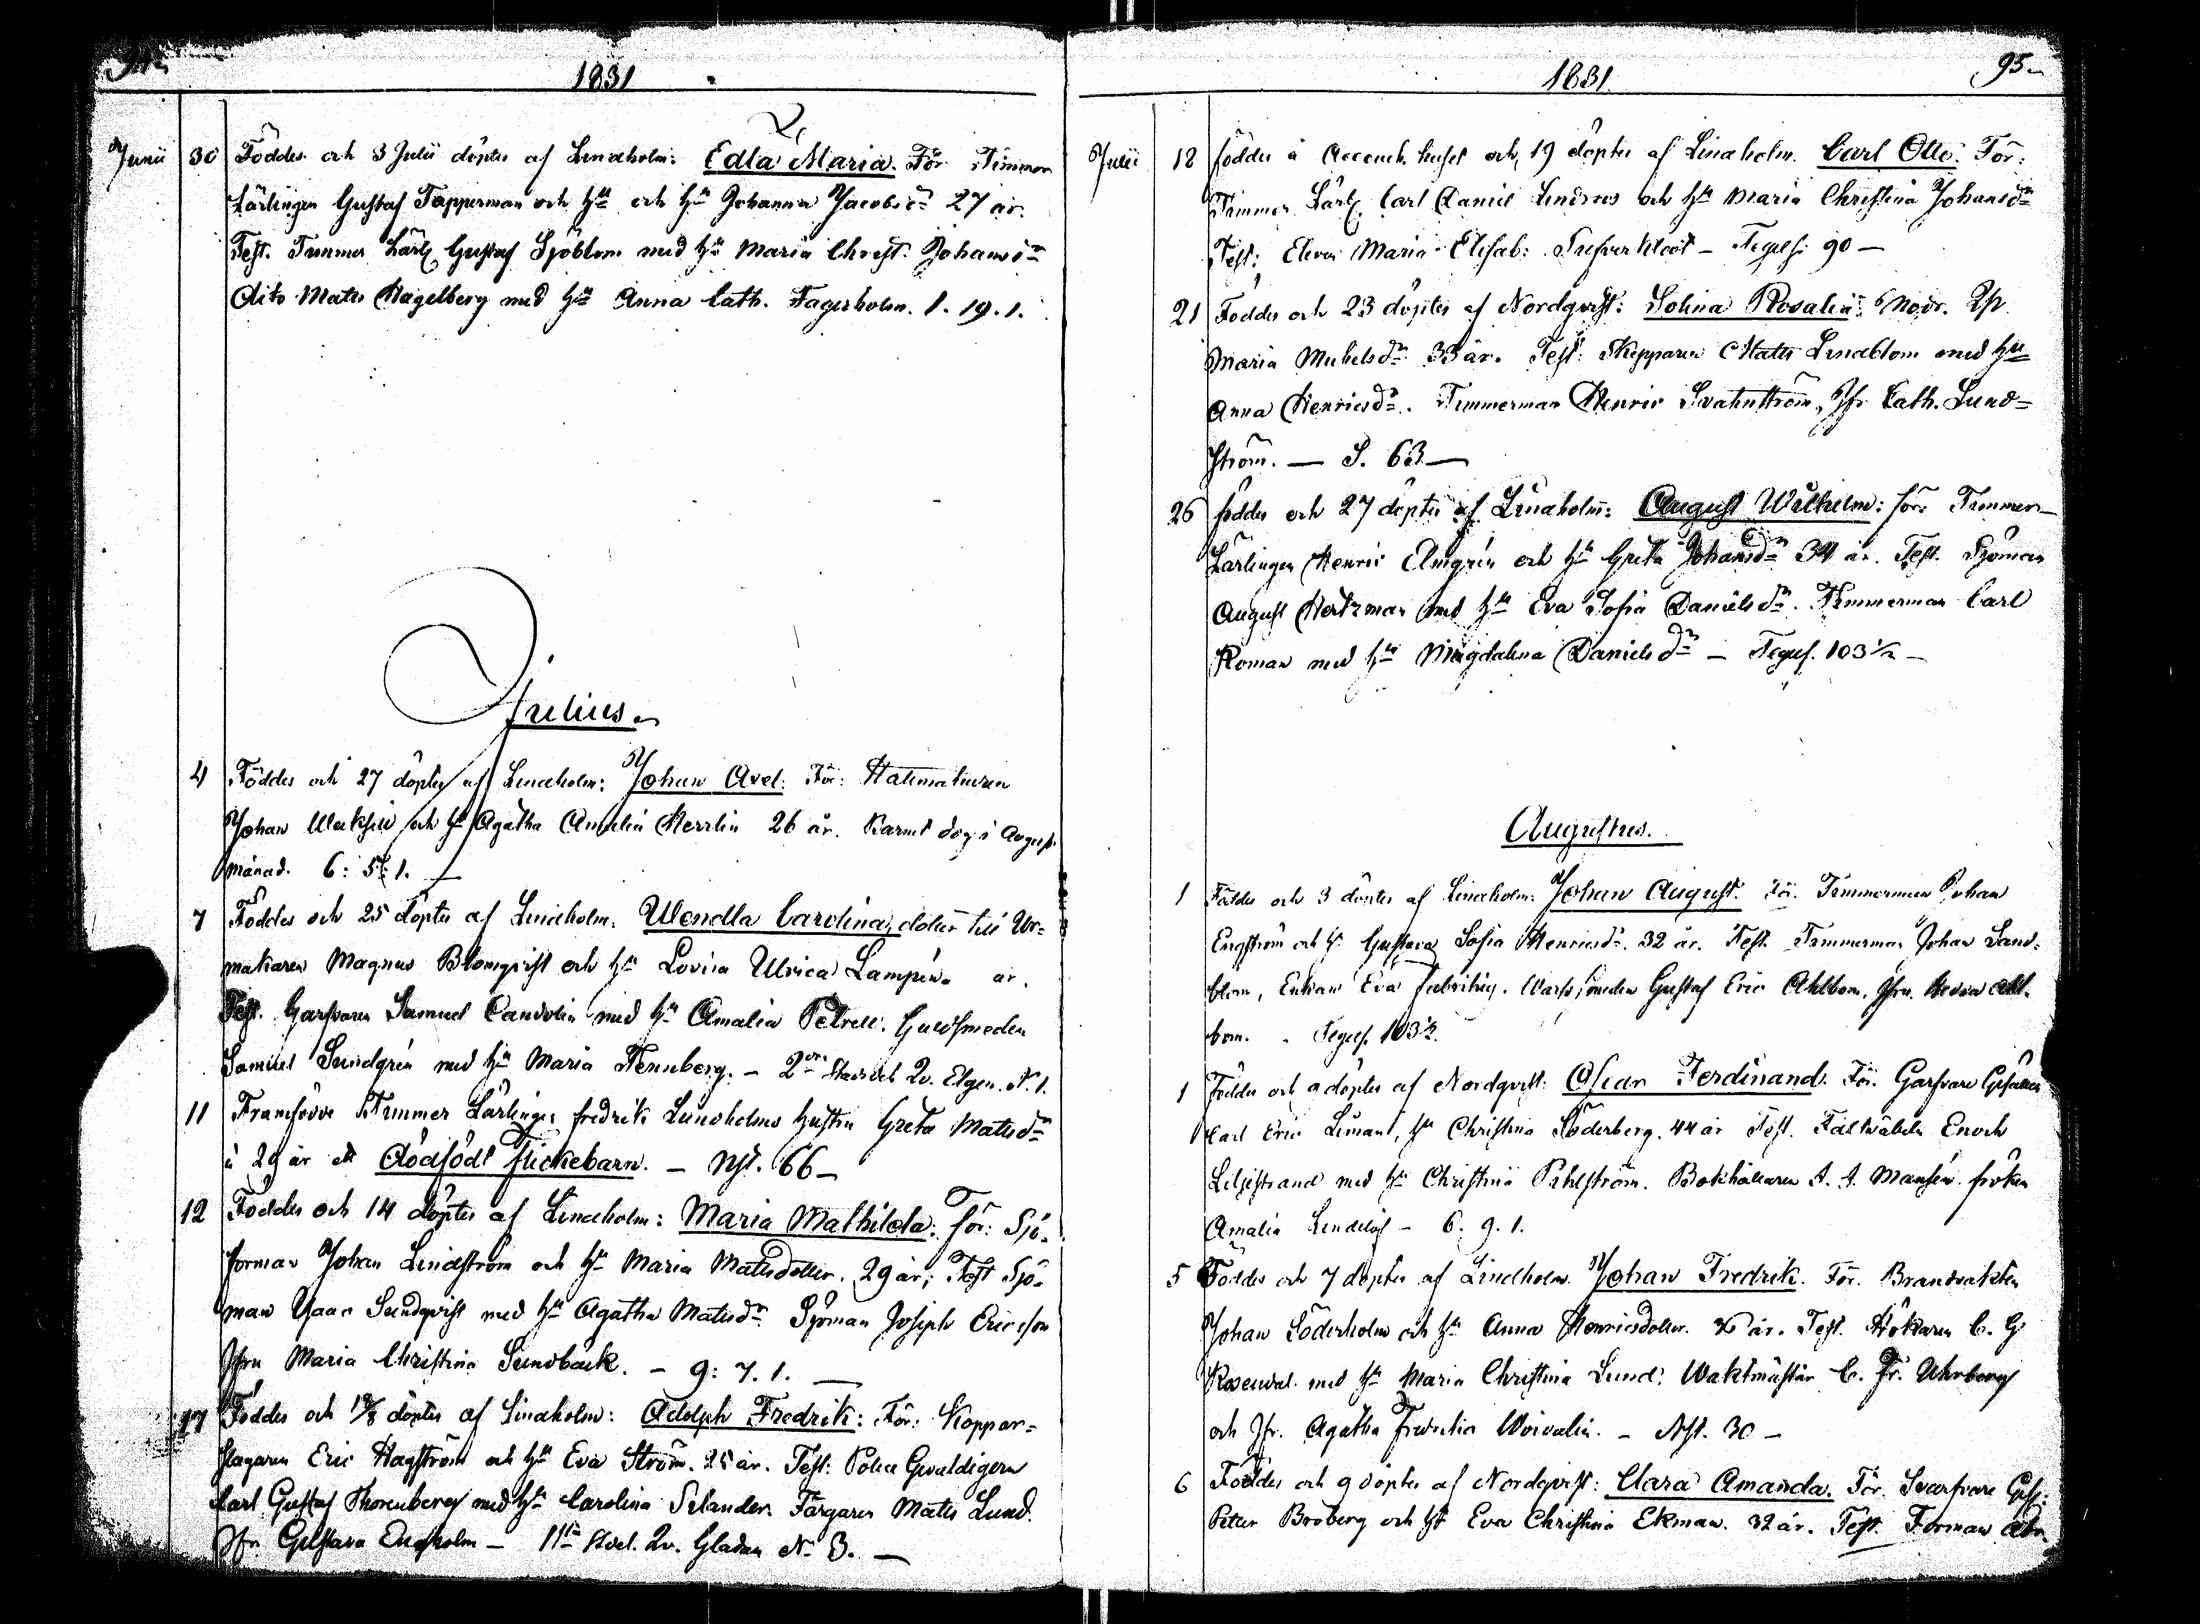 94.
1831
Junii 30 Föddes och 3 Julii döptes af Lindholm: Edla Maria. För Timmer
Lärlingen Gustaf Tapperman och Hu och Hu Johanna Jacobsdr 27 år.
Test. Timmer Lärl Gustaf Sjöblom med Hu Maria Christ. Johansdr
Dito Mats Hagelberg med Hu Anna Cath. Fagerholm. 1. 19. 1.
Julius.
4 Föddes och 27 döptes af Lindholm: Johan Axel. För:
Johan och Hu Agatha Amalia Herrlin 26 år. Barnet dog i August
månad. 6: 5: 1.
7 Föddes och 25 döptes af Lindholm: Wendla Carolina, dotter till Ur=
makaren Magnus Blomqvist och Hu Lovisa Ulrica Lampén. år.
Test. Garfvaren Samuel Candolin med Hu Amalia Petrell. Guldsmeden
Samuel Sundgrén med Hu Maria Tennberg. – 2dra Qv. Elgen. N. 1.
11 Framfödde Timmer Lärlingen Fredrik Lundholms hustru Greta Matsdr
à 29 år ett dödfödt flickebarn. – Nst. 66 –
12 Föddes och 14 döptes af Lindholm: Maria Mathilda: för: Sjö=
forman Johan Lindström och Hu Maria Matsdotter. 29 år; Test Sjö=
man Isaac Sundqvist med Hu Agatha Matsdr Sjöman Joseph Ericsson
Jfru Maria Christina Sundbäck. – 9: 7. 1. —
17 Föddes och döptes af Lindholm: Adolph Fredrik: För: Koppar=
slagaren Eric Hagström och Hu Eva Ström. 25 år. Test: Police Gevaldigern
Carl Gustaf Thorenberg med Hu Carolina Selander. Färgaren Mats Lund.
Jfr. Gustava Engholm – 11te Stdel. Qv. Gladan N. 3. —
1831
95.
Julii 18 föddes å Accouch. huset och 19 döptes af Lindholm. Carl Otto. För:
Timmer Lärl Carl Daniel Lindroos och Hu Maria Christina Johansdr
Test: Eleven Maria Elisab: Silfverkloot – Tegels. 90 —
21 Föddes och 23 döptes af Nordqvist: Solina Rosalia: Modr. Qp
Maria Michelsdr 33 år. Test: Skepparen Mats Lindblom med Hu
Anna Henricsdr. Timmerman Henric Svahnström, Jfr Cath. Lund=
ström. — S. 63 —
26 föddes och 27 döptes af Lindholm: August Wilhelm: för: Timmer=
Lärlingen Henric Almgrén och Hu Greta Johansdr 34 år. Test. Sjöman
August Hertzman med Hu Eva Sofia Danielsdr. Timmerman Carl
Roman med Hu Magdalena Danielsdr – Tegels. 103 1/2 –
Augustus.
1 Föddes och 3 döptes af Lindholm: Johan August. För. Timmerman Johan
Engström och Hu Gustava Sofia Henricsdr. 32 år. Test. Timmerman Johan Sand=
blom, Enkan Eva. Warfs smeden Gustaf Eric Ahlbom, Jfru. Hedda Ahl=
bom. Tegels. 103 1/2.
1 Föddes och döptes af Nordqvist: Oscar Ferdinand. För. Garfvare Gesällen
Carl Eric Limant, Hu Christina Söderberg. 44 år Test. Fältwäbeln Enoch
Liljestrand med Hu Christina Pihlström. Bokhållaren A. A. Mansén. fröken
Amalia Lindelöf – 6. 9. 1.
5 Föddes och 7 döptes af Lindholm. Johan Fredrik. För. Brandvakten
Johan Söderholm och Hu Anna Henricsdotter. år. Test. Hökaren C. G
Rosendal. med Hu Maria Christina Lund: Waktmästar C. Fr. Uhrberg
och Jfr. Agatha Fredrica Woivalin. – Nst. 30 –
6 Föddes och 9 döptes af Nordqvist: Clara Amanda. För. Svarfvare Ges.
Petter Broberg och Hu Eva Christina Ekman. 32 år. Test. Forman Abr.